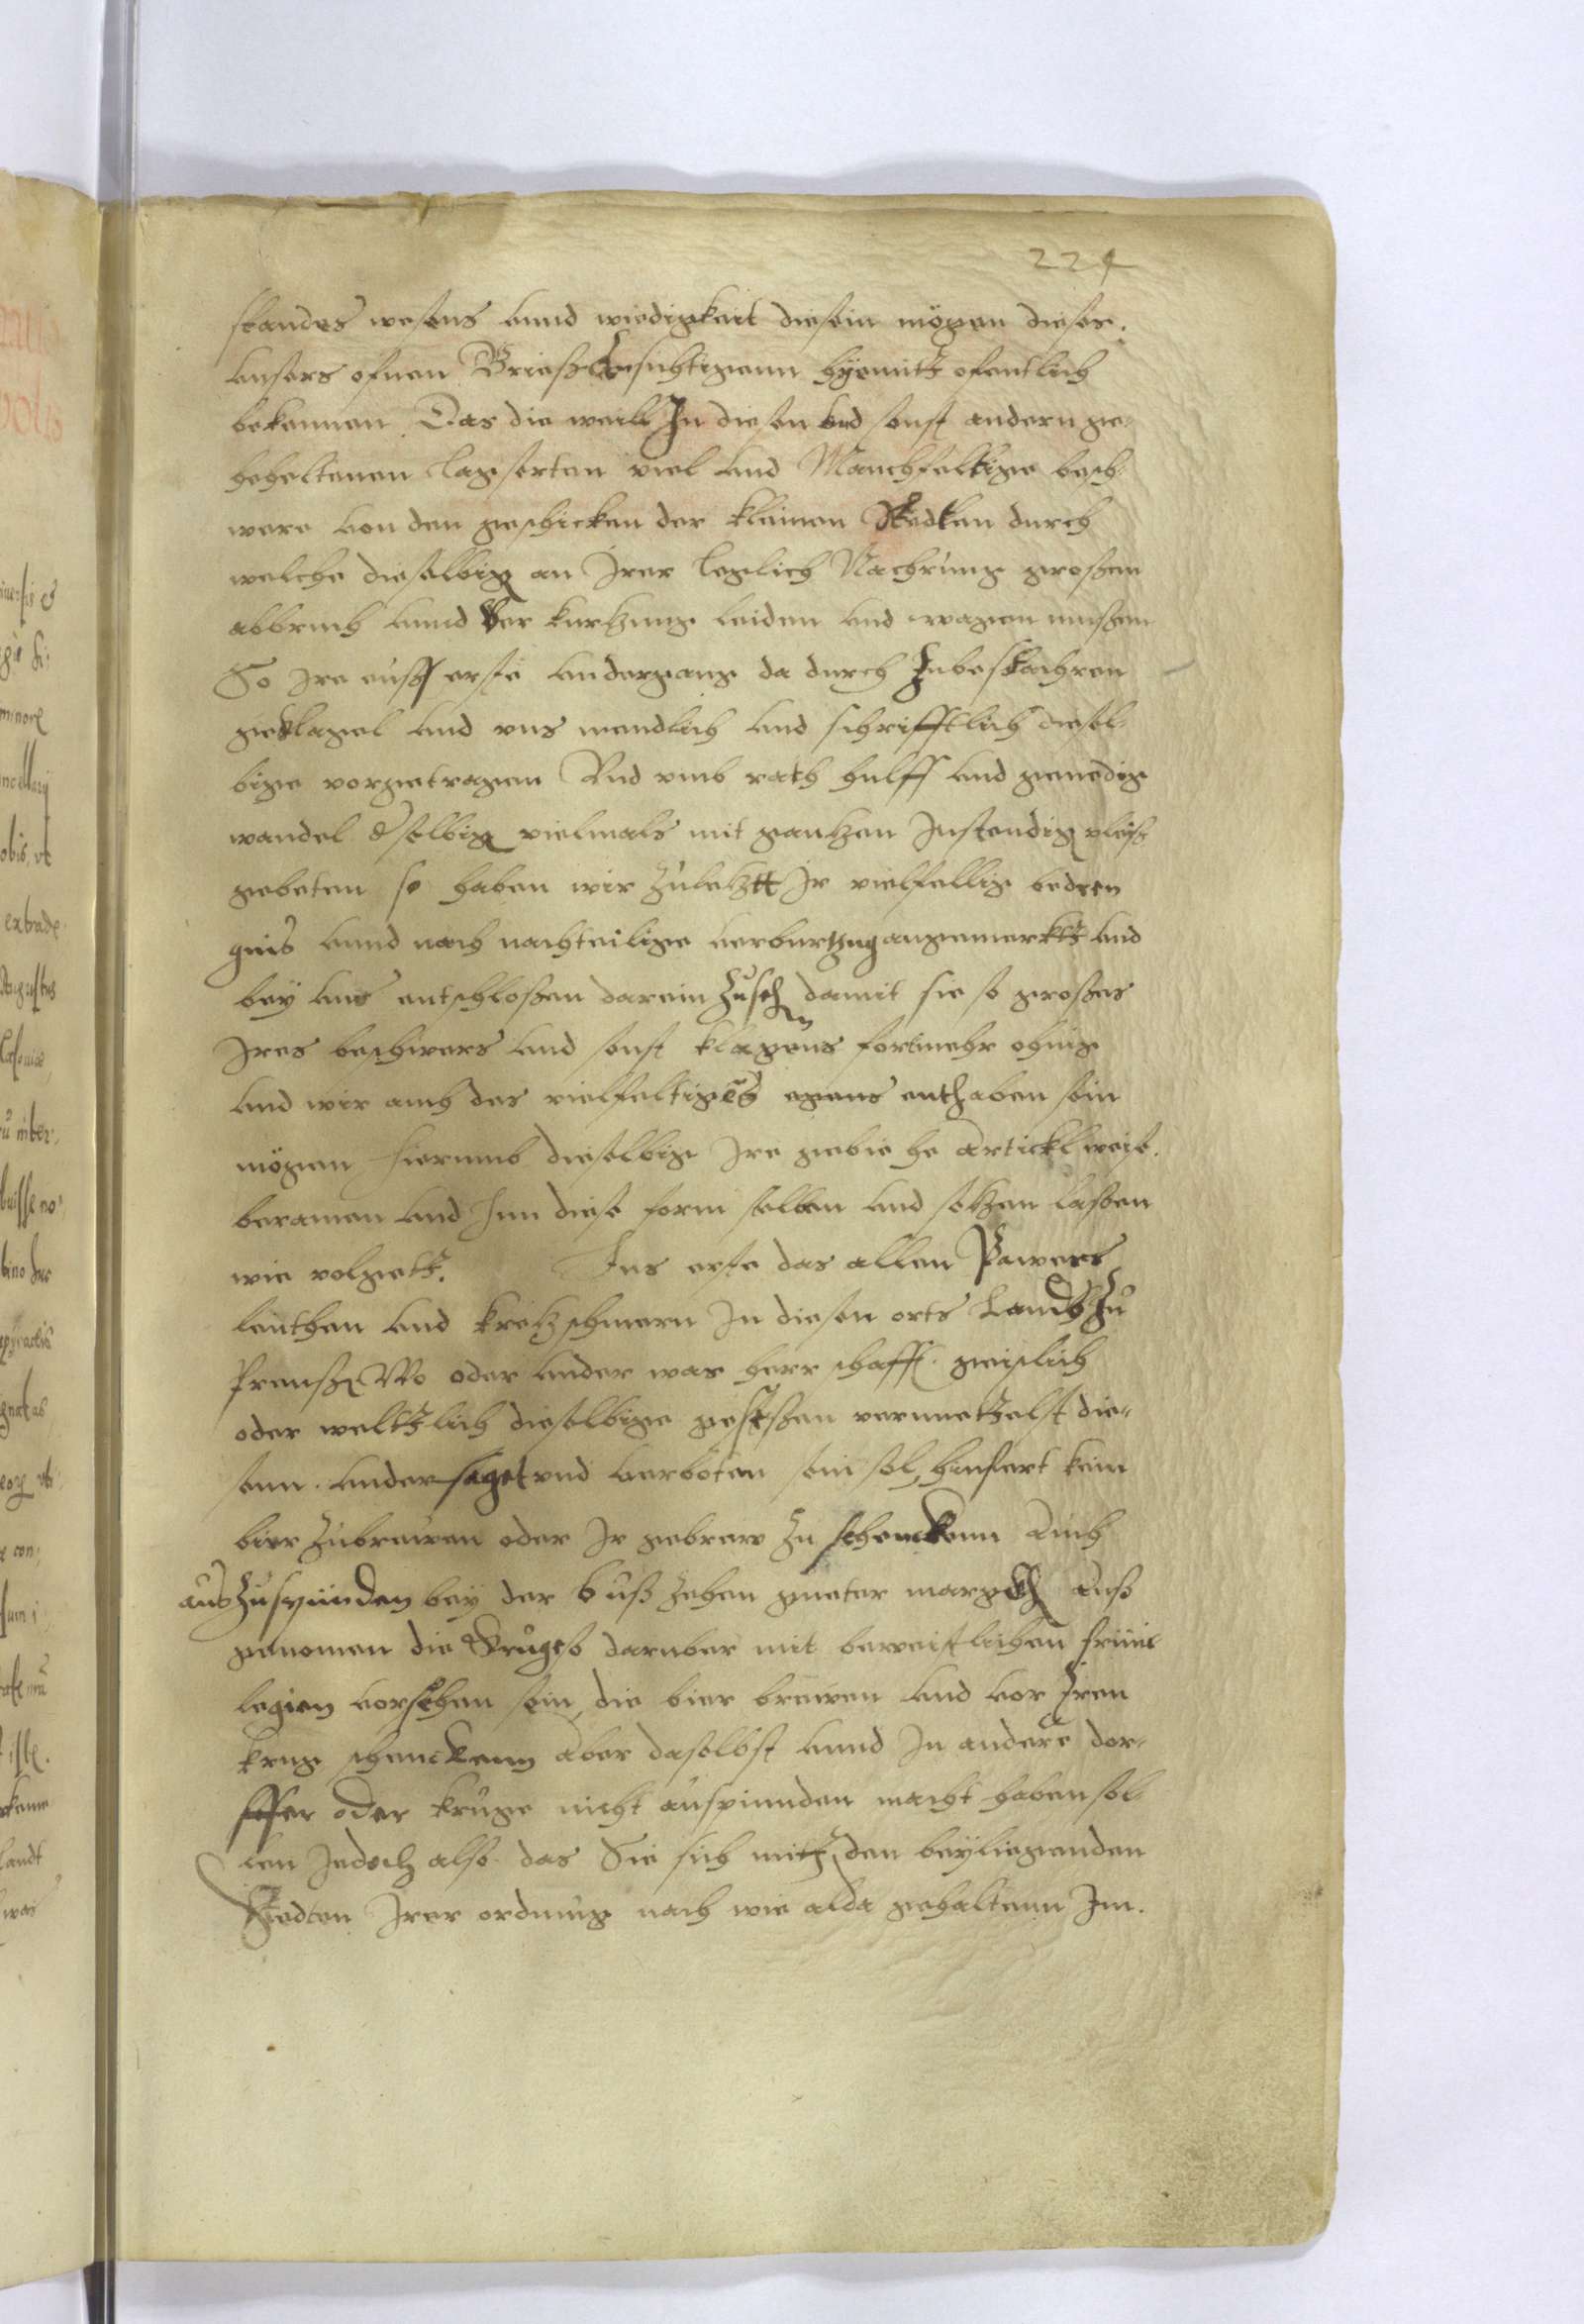 224
standes wesens unnd wirdigkeit die sein mögen dieses.
unsers ofnen Brieffs Ansichtigenn hÿemitt ofentlich
bekennen Das die weil In diesen und sonst andern ge-
hehaltenen tagferten viel und Manchfeltige besch-
were von den geschicken der kleinen Stedten durch
welche dieselbig an Irer teglich Nachrung grossen
abbruch unnd Ver kurtzung leiden und wagen mussen
So Ire eusserste undergang da durch zu befachren
geklaget und uns mundlich und schrifftlich diesel-
bige vorgetragen Und umb rath hulff und genedig
wandel dselbig vielmals mit gantzen Instendig vleiss
gebeten so haben wir zuletztt Ir vielfellig bedren
gnis unnd noch nachteilige verkurtzug angemerktt und
beÿ uns entschlossen darein zusehn damit sie so grosses
Ires beschwers und sonst klagens fortmehr ohnig
und wir auch des vielfeltiges egens enthaben sein
mögen hierumb dieselbig Ire gebre he Artickl weise.
beramen und Inn diese form stellen und setzen lassen
wie volgett. Ins erste das allen Pawers
leuthen und kretzschmern In diesen orts Landts zu
Preussen Wo oder under was herrschafft geistlich
oder weltzlich dieselbige gesessen vermittelst die-
senn. undersaget und verboten sein sol, hinfort kein
bier zubrewen oder Ir gebrew zu schenckenn Auch
auszuspünden beÿ der buss zehen gueter margkh Auss
genomen die Kruge so daruber mit beweislichen privi
legien vorsehen sein, die bier brewen und vor Iren
krug schenckenn Aber daselbst unnd In andere dor-
ffer oder kruge nicht auspunden macht haben sol-
len Jedoch also das Sie sich mith den beÿliegenden
Stedten Irer ordnung nach wie alda gehaltenn Im.